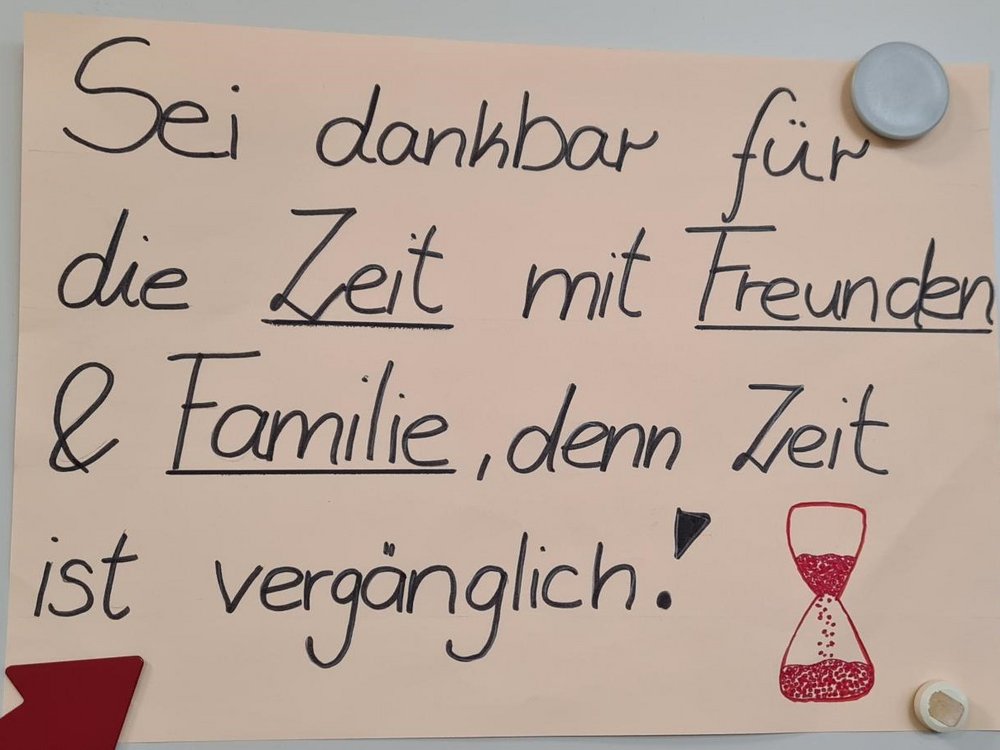 Sei dankbar für
die Zeit mit Freunden
& Familie, denn Zeit
ist vergänglich!